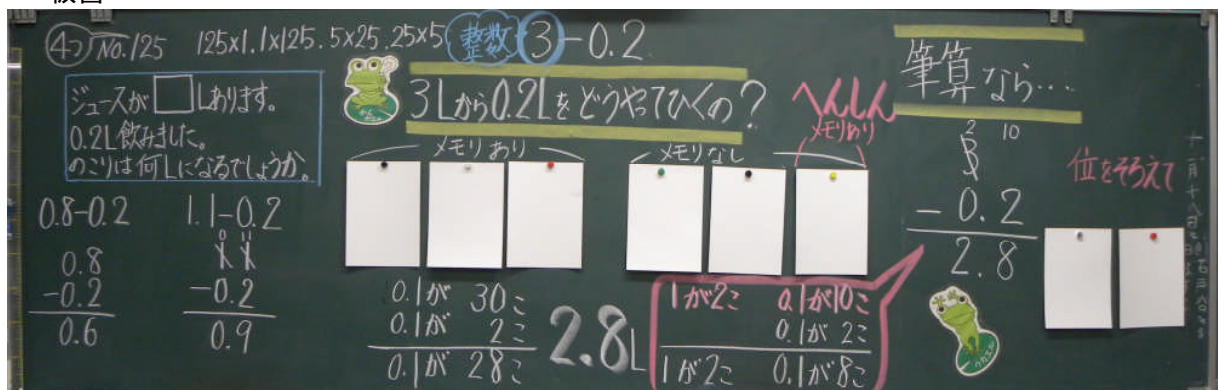 板書
④ No.125 125×1.1×125.5×25.25×5 整数 ③-0.2
ジュースが□Lあります。
0.2L飲みました。
のこりは何Lになるでしょうか。
0.8-0.2
0.8
-0.2
0.6
1.1-0.2
0 11
1.1
-0.2
0.9
3Lから0.2Lをどうやってひくの?
メモリあり
メモリなし
へんしん
メモリあり
0.1が 30こ
0.1が 2こ
0.1が 28こ
2.8L
1が2こ 0.1が10こ
0.1が 2こ
1が2こ 0.1が8こ
筆算なら…
2 10
3
-0.2
2.8
位をそろえて